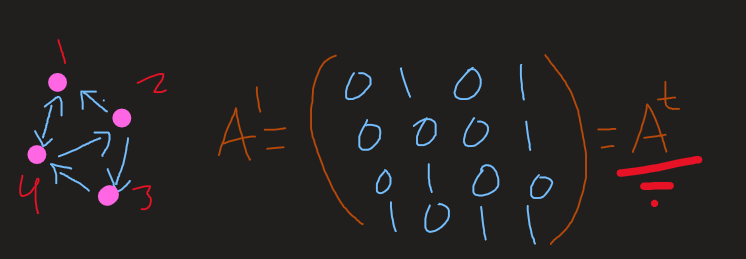 1
2
4
3
A' = ( 0 1 0 1
0 0 0 1
0 1 0 0
1 0 1 1 ) = Aᵗ